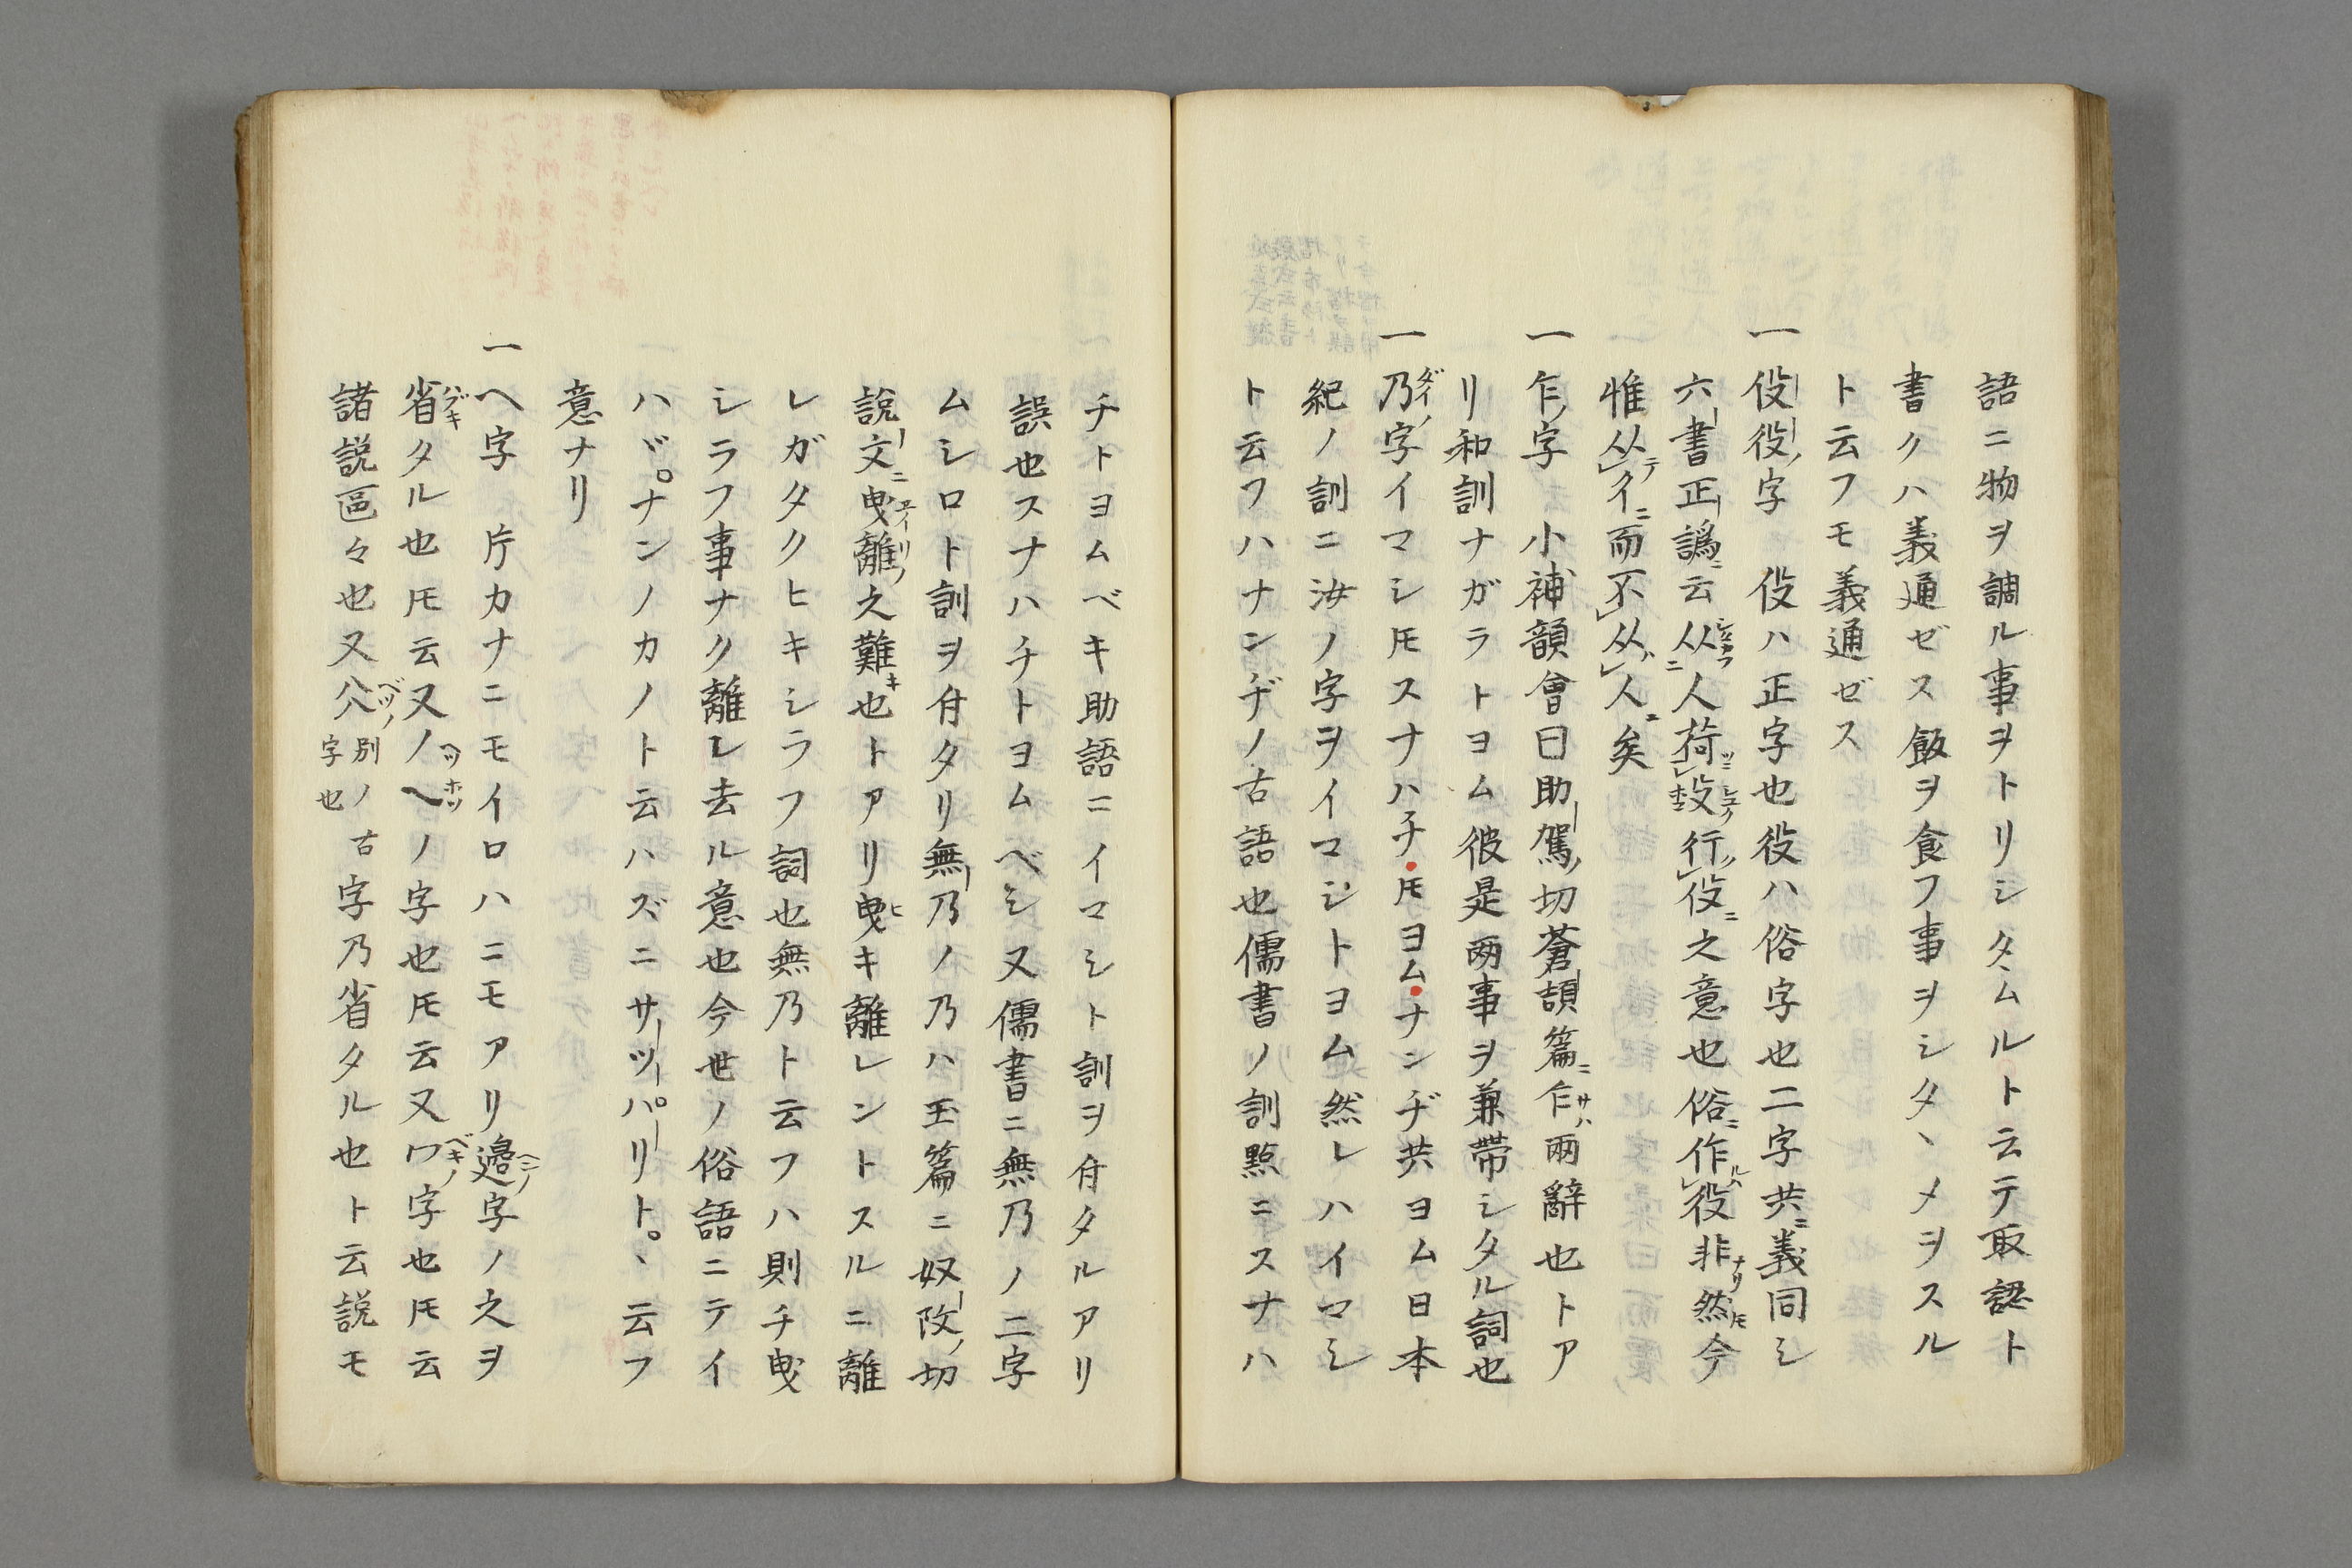 語ニ物ヲ調ル事ヲトリシタヽムルト云テ取認ト
書クハ義通ゼス飯ヲ食フ事ヲシタヽメヲスル
ト云フモ義通ゼス
一伇役ノ字 伇ハ正字也役ハ俗字也二字共ニ義同シ
六書正譌ニ云从人荷殳行伇之意也俗ニ作役非然今
惟从彳而不从人矣
一乍ノ字 小補韻會曰助駕ノ切蒼頡篇ニ乍両辭也トア
リ和訓ナガラトヨム彼是両事ヲ兼帯シタル詞也
一乃ノ字イマシ𪜈スナハチ𪜈ヨムナンヂ共ヨム日本
紀ノ訓ニ汝ノ字ヲイマシトヨム然レハイマシ
ト云フハナンヂノ古語也儒書ノ訓點ニスナハ
チトヨムベキ助語ニイマシト訓ヲ付タルアリ
誤也スナハチトヨムベシ又儒書ニ無乃ノ二字
ムシロト訓ヲ付タリ無乃ノ乃ハ玉篇ニ奴改ノ切
說文ニ曳離之難也トアリ曳キ離レントスルニ離
レガタクヒキシラフ詞也無乃ト云フハ則チ曳
シラフ事ナク離レ去ル意也今世ノ俗語ニテイ
ハヾナンノカノト云ハズニサツパリトヽ云フ
意ナリ
一へ字 片カナニモイロハニモアリ邊字ノ之ヲ
省タル也𪜈云又ノ乀ノ字也𪜈云又冖字也𪜈云
諸説區々也又㕣別ノ古字也字乃省タル也ト云説モ